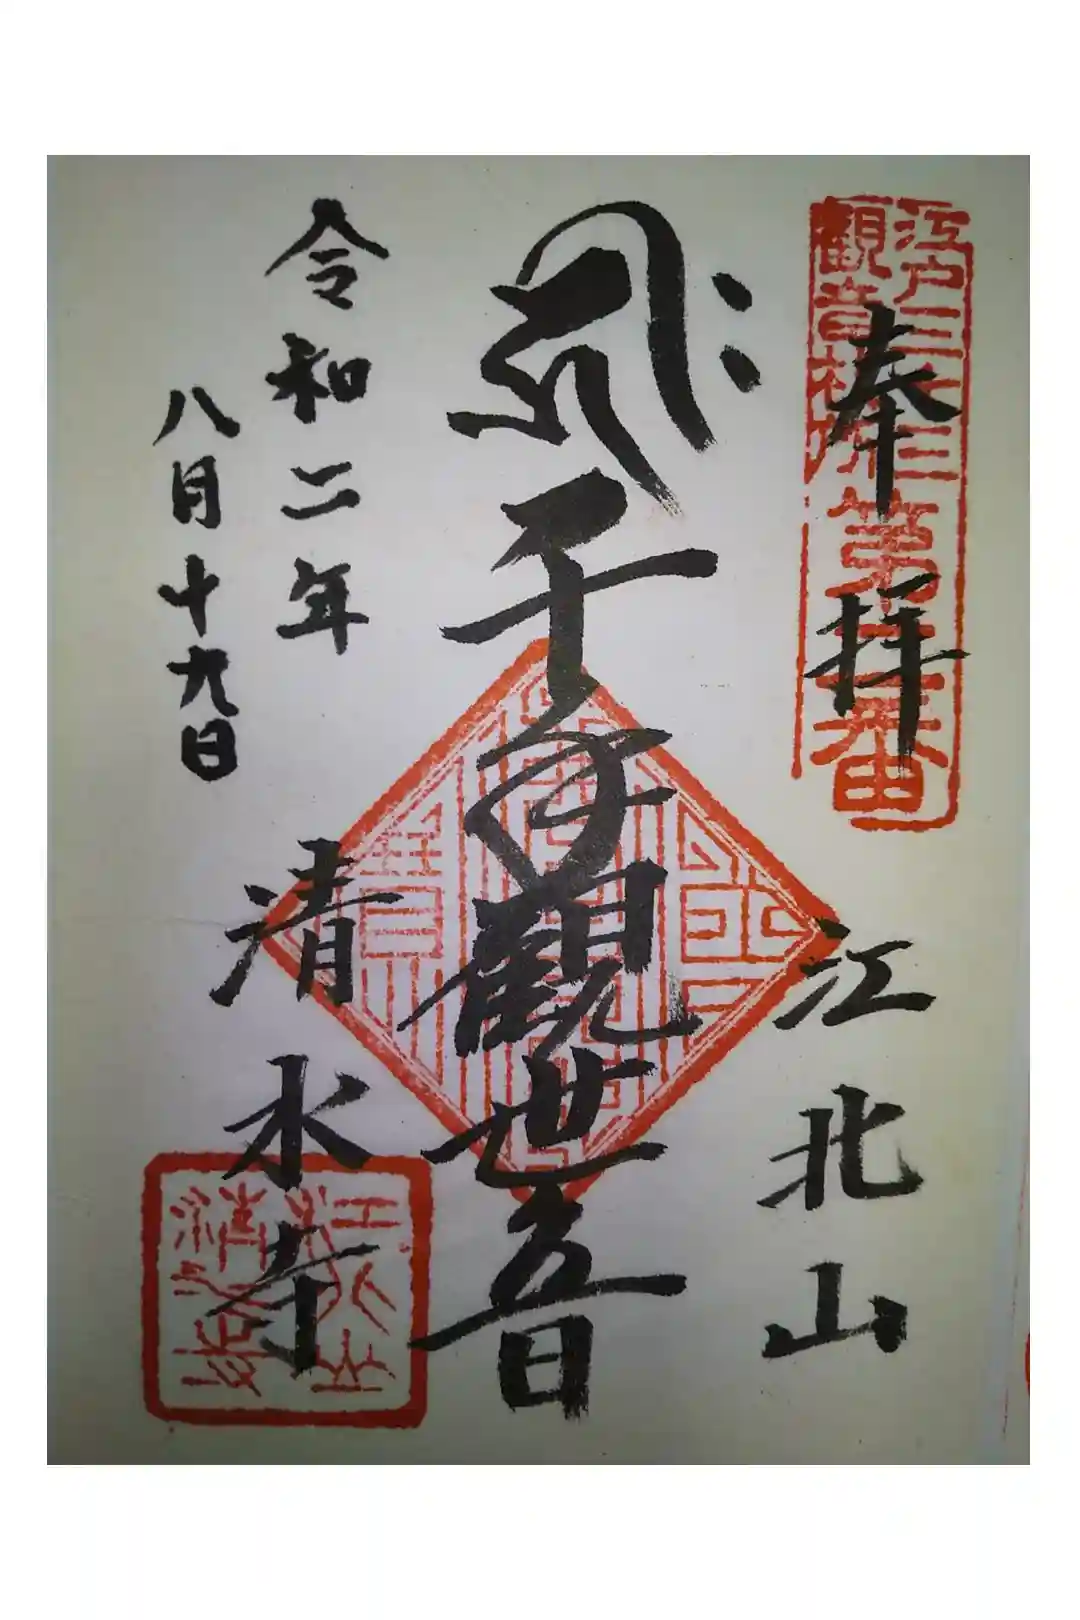 江戸三十三
観音札所
第二番
奉拝
江北山
千手観世音
清水寺
令和二年
八月十九日